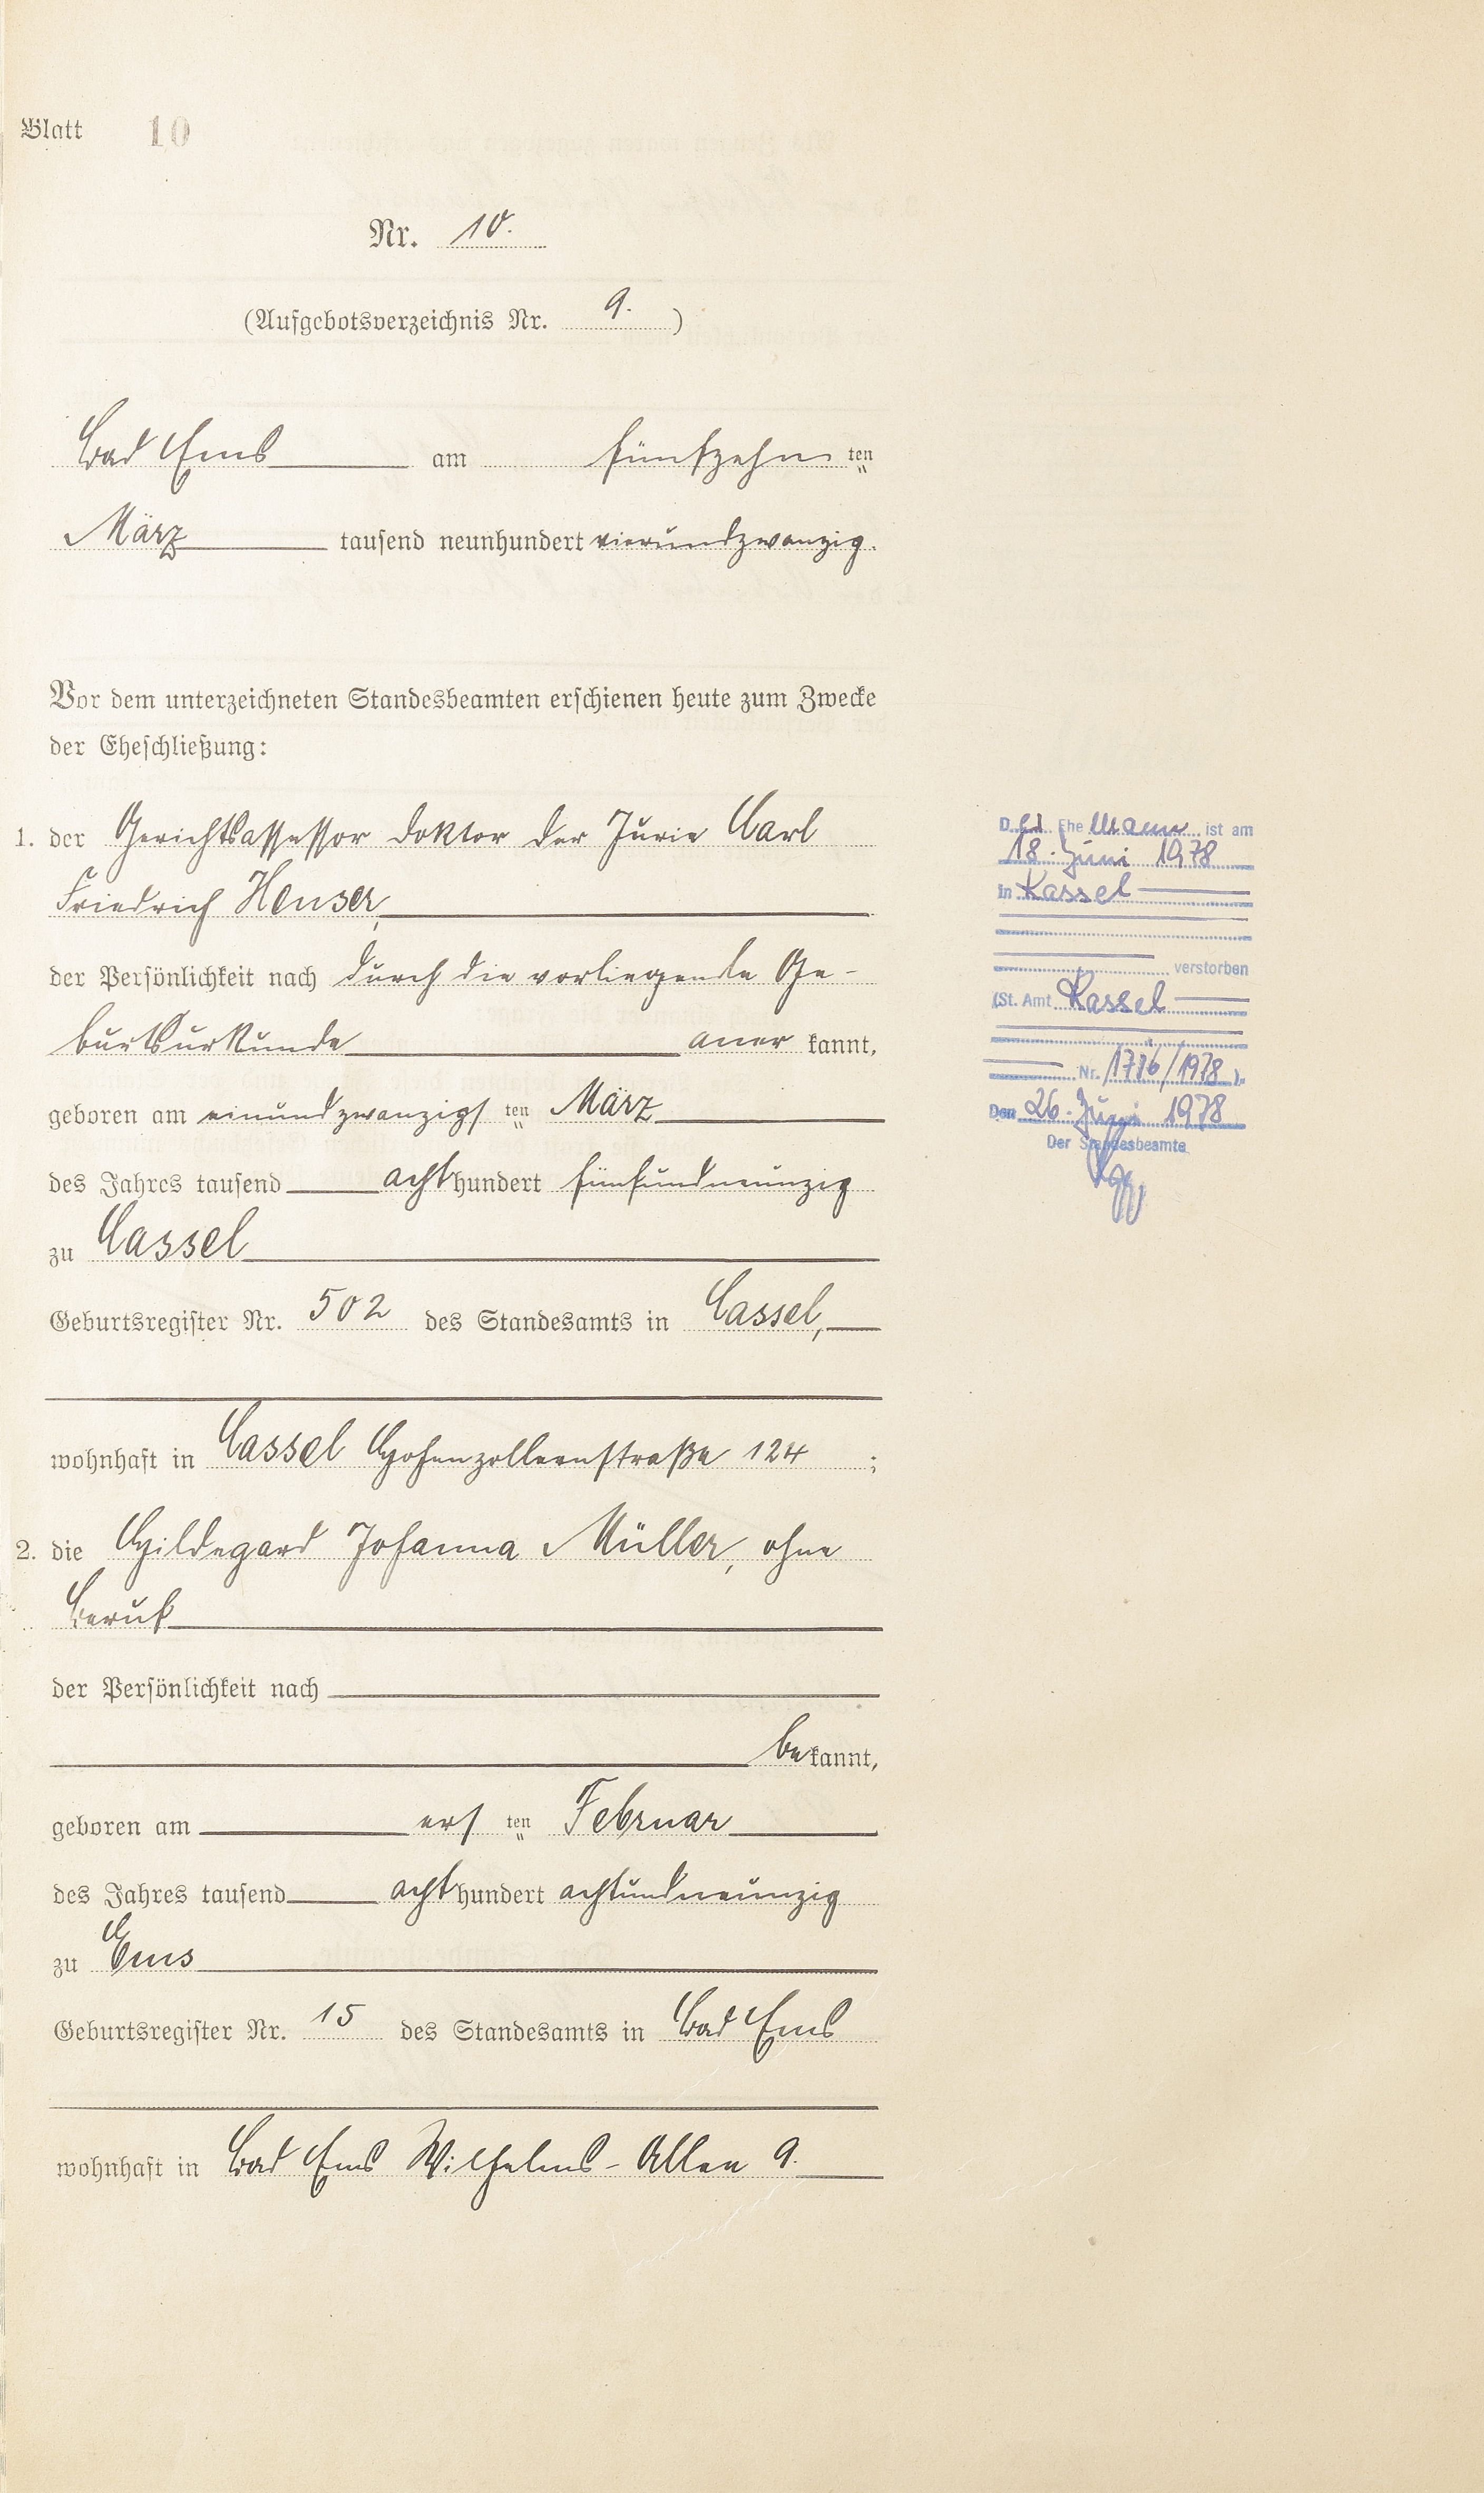 Blatt 10
Nr. 10.
(Aufgebotsverzeichnis Nr. 9.)
Bad Ems am fünfzehn ten
März tausend neunhundert vierundzwanzig.
Vor dem unterzeichneten Standesbeamten erschienen heute zum Zwecke
der Eheschließung:
1. der Gerichtsassessor Doktor der Jurie Carl
Friedrich Heuser,
der Persönlichkeit nach durch die vorliegende Ge-
burtsurkunde aner kannt,
geboren am einundzwanzigs ten März
des Jahres tausend acht hundert fünfundneunzig
zu Cassel
Geburtsregister Nr. 502 des Standesamts in Cassel,
wohnhaft in Cassel Hohenzollernstraße 124 ;
2. die Hildegard Johanna Müller, ohne
Beruf
der Persönlichkeit nach
be kannt,
geboren am ers ten Februar
des Jahres tausend acht hundert achtundneunzig
zu Ems
Geburtsregister Nr. 15 des Standesamts in Bad Ems
wohnhaft in Bad Ems Wilhelms-Allee 9.
D. er Ehe Mann ist am
18. Juni 1978
in Kassel
verstorben
(St. Amt Kassel
Nr. /1978).
Den 26. Juni 1978
Der Standesbeamte